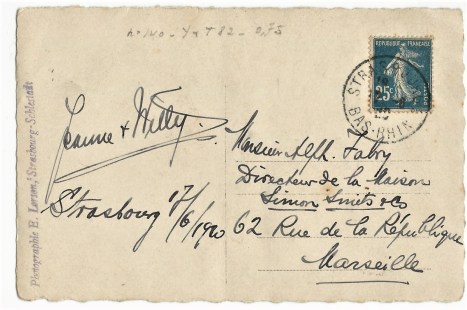 N° 140 - Y & T 82 - 0,75
REPUBLIQUE FRANÇAISE
25c
STRASB
BAS-RHIN
Jeanne & Willy.
Strasbourg 17/6/1920
Monsieur Alph. Fabry
Directeur de la Maison
Simon Smits & Co
62 Rue de la République
Marseille
Photographie E. Larsen, Strasbourg-Schlestadt